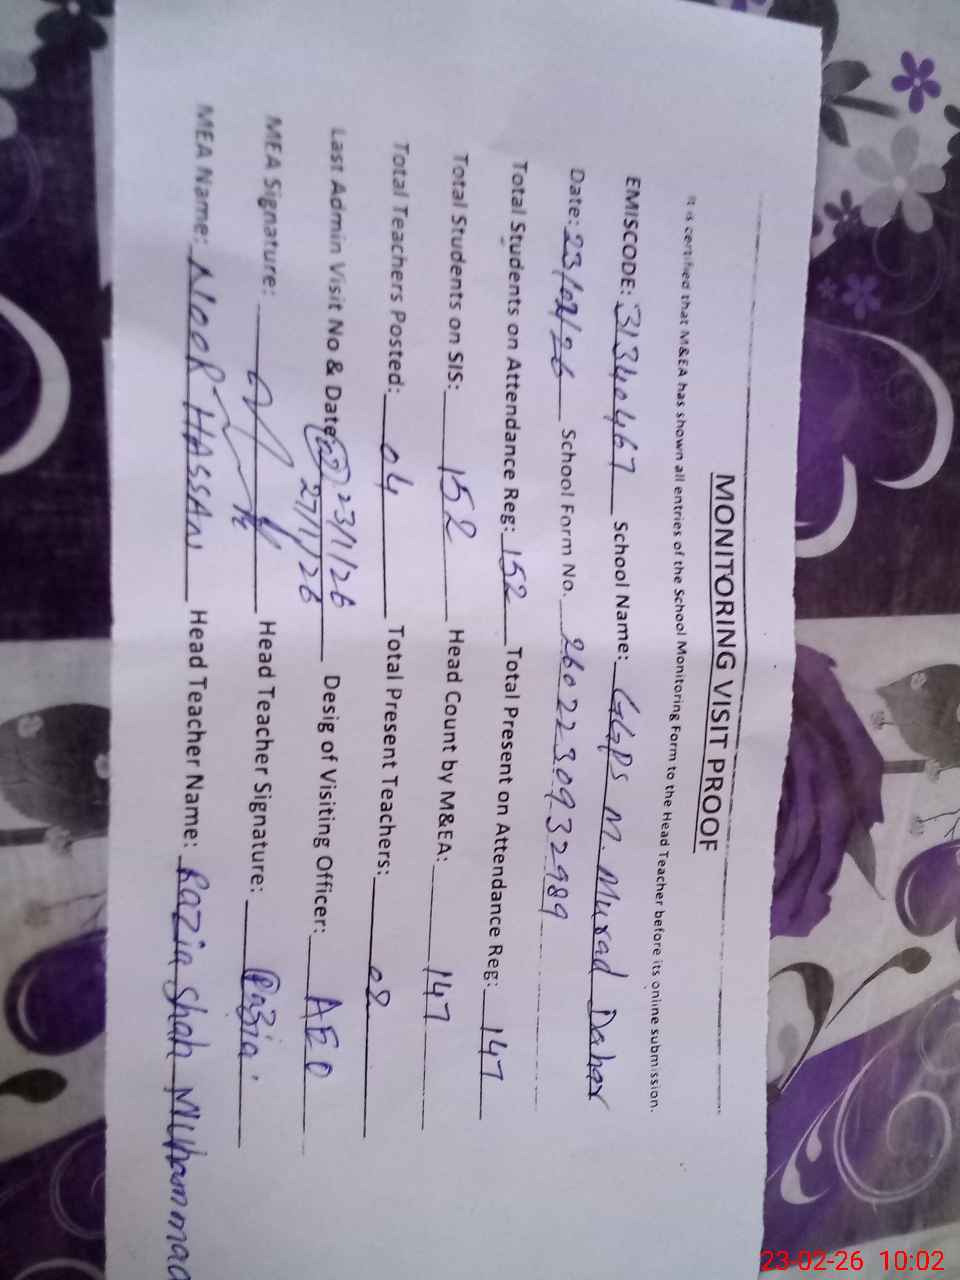 MONITORING VISIT PROOF
It is certified that M&EA has shown all entries of the School Monitoring Form to the Head Teacher before its online submission.
EMISCODE: 31340467 School Name: GGPS M. Murad Dahar
Date: 23/02/26 School Form No. 2602230932989
Total Students on Attendance Reg: 152 Total Present on Attendance Reg: 147
Total Students on SIS: 152 Head Count by M&EA: 147
Total Teachers Posted: 04 Total Present Teachers: 02
Last Admin Visit No & Date: 02 23/1/26 27/1/26 Desig of Visiting Officer: AEO
MEA Signature: Head Teacher Signature: Razia
MEA Name: NOOR HASSAN Head Teacher Name: Razia Shah Muhammad
23-02-26 10:02